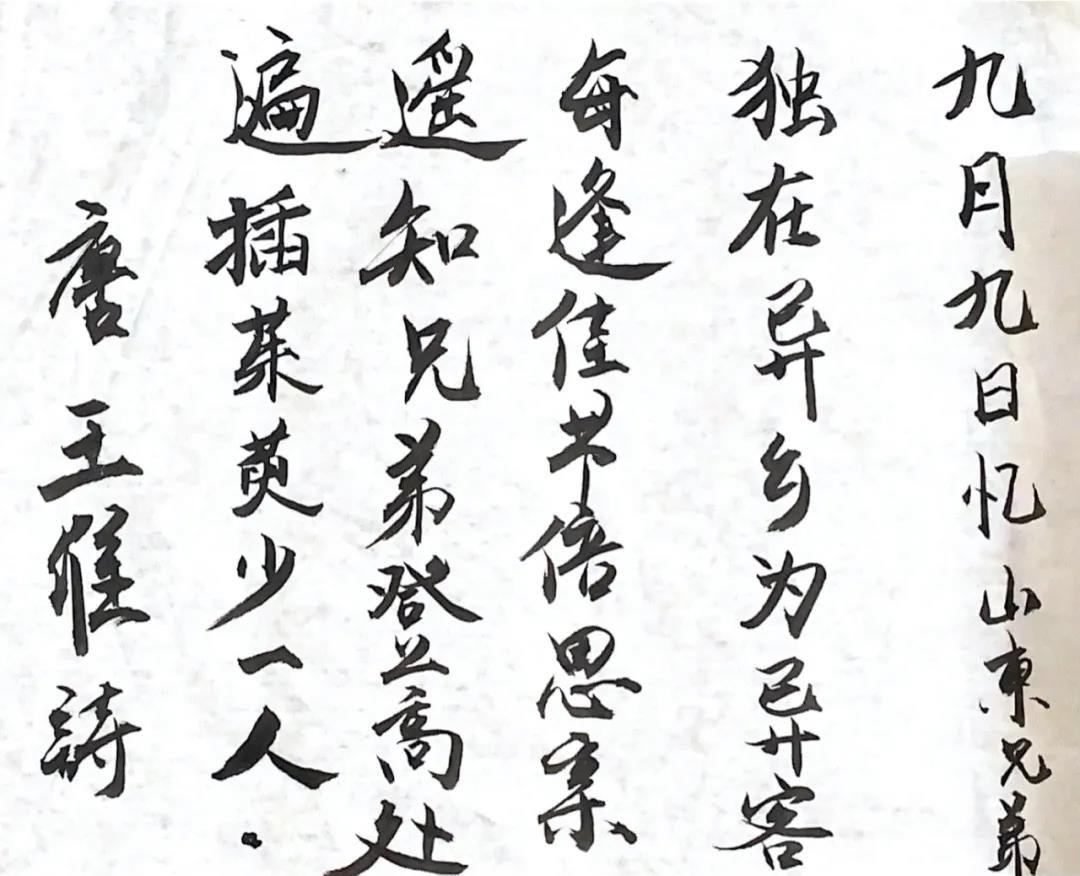 九月九日忆山东兄弟
独在异乡为异客
每逢佳节倍思亲
遥知兄弟登高处
遍插茱萸少一人.
唐王维詩